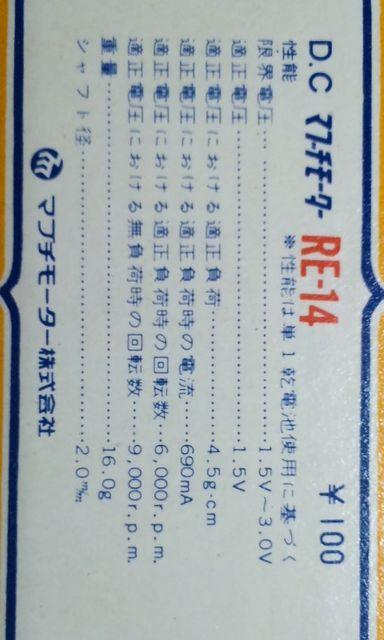 D.C マブーチモーター RE-14 ¥100
性能 ※性能は単1乾電池使用に基づく
限界電圧‥‥‥‥‥‥‥‥1.5V〜3.0V
適正電圧‥‥‥‥‥‥‥‥1.5V
適正電圧における適正負荷‥‥‥‥4.5g·cm
適正電圧における適正負荷時の電流‥‥690mA
適正電圧における適正負荷時の回転数‥6,000r.p.m.
適正電圧における無負荷時の回転数‥‥9,000r.p.m.
重量‥‥‥‥‥‥‥‥‥‥16.0g
シャフト径‥‥‥‥‥‥‥‥2.0m/m
マブチモーター株式会社